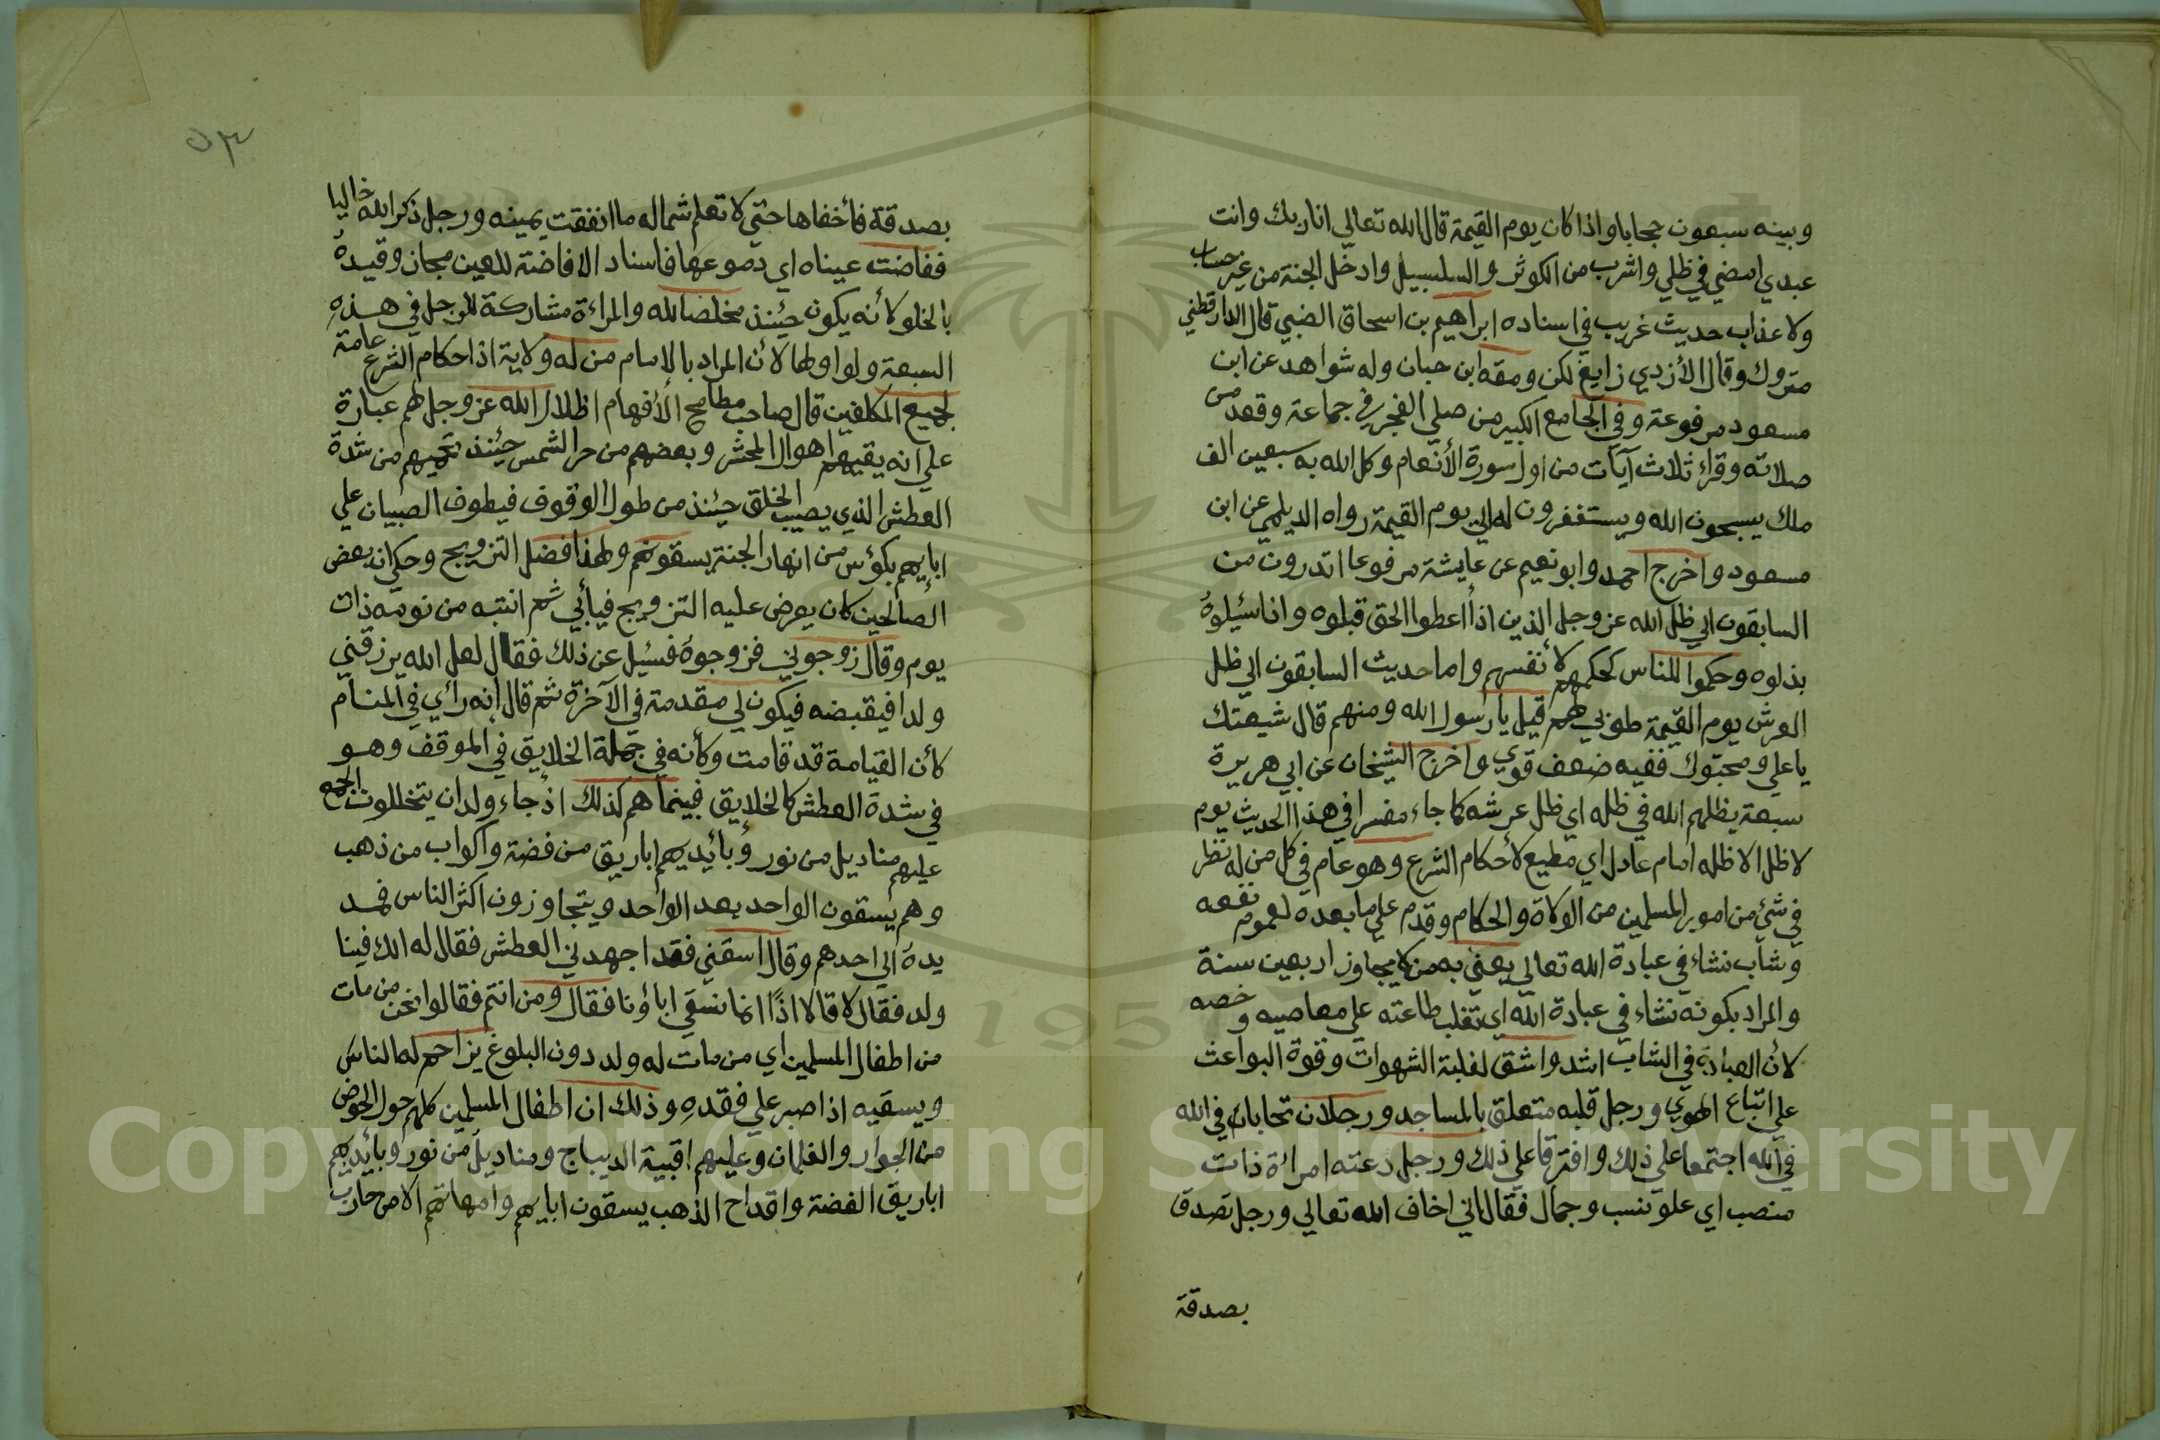 وبينه سبعون حجابا واذا كان يوم القيمة قال الله تعالى انا ربك وانت
عبدي امضي في ظلي واشرب من الكوثر والسلسبيل وادخل الجنة من غير حساب
ولا عذاب حديث غريب في اسناده ابراهيم بن اسحاق الضبي قال الدارقطني
متروك وقال الأزدي زايغ لكن ومقه ابن حبان وله شواهد عن ابن
مسعود مرفوعة وفي الجامع الكبير من صلى الفجر في جماعة وقعد من
صلاته وقراء ثلاث آيات من اول سورة الأنعام وكل الله به سبعين الف
ملك يسبحون الله ويستغفرون له الي يوم القيمة رواه الديلمي عن ابن
مسعود واخرج احمد وابو نعيم عن عايشة مرفوعا اتدرون من
السابقون الي ظل الله عز وجل الذين اذا أعطوا الحق قبلوه واذا سئيلوه
بذلوه وحكموا للناس كحكمهم لأنفسهم واما حديث السابقون الي ظل
العرش يوم القيمة طوبي لهم قيل يا رسول الله ومنهم قال شيعتك
يا علي ومحبوك ففيه ضعف قوي واخرج الشيخان عن ابي هريرة
سبعة يظلهم الله في ظله اي ظل عرشه كما جاء مفسرا في هذا الحديث يوم
لا ظل الا ظله امام عادل اي مطيع لأحكام الشرع وهو عام في كل من له نظر
في شئ من امور المسلمين من الولاة والحكام وقدم علي ما بعده لعموم نفعه
وشاب نشاء في عبادة الله تعالي يعني به من لا يجاوز اربعين سنة
والمراد بكونه نشاء في عبادة الله اي تغلب طاعته علي معاصيه وخصه
لأن العبادة في الشاب اشد واشق لغلبة الشهوات وقوة البواعث
علي اتباع الهوي ورجل قلبه متعلق بالمساجد ورجلان تحابان في الله
في الله اجتمعا علي ذلك وافترقا علي ذلك ورجل دعته امراة ذات
منصب اي علو نسب وجمال فقال اني اخاف الله تعالي ورجل تصدق
بصدقة
٥٣
بصدقة فأخفاها حتي لا تعلم شماله ما انفقت يمينه ورجل ذكر الله خاليا
ففاضت عيناه اي دموعها فاسناد الافاضة للعين مجاز وقيده
بالخلو لأنه يكون حيئنذ مخلصا لله والمراءة مشاركة للرجل في هذه
السبعة ولو اولها لأن المراد بالامام من له ولاية اذ احكام الشرع عامة
لجميع المكلفين قال صاحب مطامح الأفهام اظلال الله عز وجل لهم عبارة
علي انه يقيهم اهوال المحشر وبعضهم من حر الشمس حيئنذ تحميهم من شدة
العطش الذي يصيب الخلق حيئنذ من طول الوقوف فيطوف الصبيان علي
ابايهم بكؤس من انهار الجنة يسقونهم ولهذا فضل التزويج وحكي ان بعض
الصالحين كان يعرض عليه التزويج فيأبي ثم انتبه من نومه ذات
يوم وقال زوجوني فزوجوه فسئيل عن ذلك فقال لعل الله يرزقني
ولدا فيقبضه فيكون لي مقدمة في الآخرة ثم قال إنه رائي في المنام
كأن القيامة قد قامت وكأنه في جملة الخلايق في الموقف وهو
في شدة العطش كالخلايق فبينما هم كذلك اذ جاء ولدان يتخللون الجمع
عليهم مناديل من نور وبأيديهم اباريق من فضة واكواب من ذهب
وهم يسقون الواحد بعد الواحد ويتجاوزون اكثر الناس فمد
يده الي احدهم وقال اسقني فقد اجهدني العطش فقال له الك فينا
ولد فقال لا قال اذًا انما نسقي اباؤنا فقال ومن انتم فقالوا نحن من مات
من اطفال المسلمين اي من مات له ولد دون البلوغ يزاحم له الناس
ويسقيه اذا صبر علي فقده وذلك ان اطفال المسلمين كلهم حول الحوض
من الجوار والغلمان وعليهم اقبية الديباج ومناديل من نور وبأيديهم
اباريق الفضة واقداح الذهب يسقون ابايهم وامهاتهم الا من حارب
Copyright © King Saud University
1957